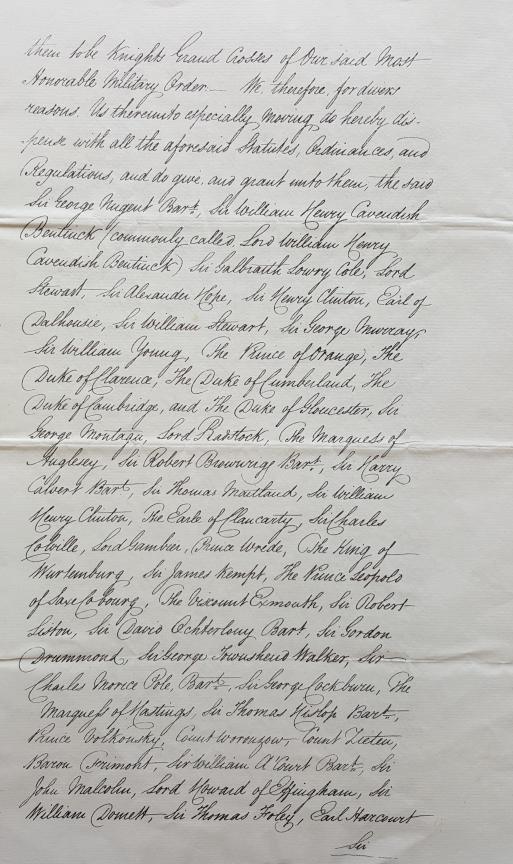 them to be Knights Grand Crosses of Our said Most
Honorable Military Order.— We, therefore, for divers
reasons, Us thereunto especially moving, do hereby dis-
-pense with all the aforesaid Statutes, Ordinances, and
Regulations, and do give, and grant unto them, the said
Sir George Nugent Bart., Sir William Henry Cavendish
Bentinck (commonly called, Lord William Henry
Cavendish Bentinck) Sir Galbraith Lowry Cole, Lord
Stewart, Sir Alexander Hope, Sir Henry Clinton, Earl of
Dalhousie, Sir William Stewart, Sir George Murray,
Sir William Young, The Prince of Orange, The
Duke of Clarence, The Duke of Cumberland, The
Duke of Cambridge, and The Duke of Gloucester, Sir
George Montagu, Lord Radstock, The Marquess of
Anglesey, Sir Robert Brownrigg Bart., Sir Harry
Calvert Bart., Sir Thomas Maitland, Sir William
Henry Clinton, The Earle of Clancarty, Sir Charles
Colville, Lord Gambier, Prince Wrede, The King of
Wurtemburg, Sir James Kempt, The Prince Leopold
of Saxe Cobourg, The Viscount Exmouth, Sir Robert
Liston, Sir David Ochterlony Bart., Sir Gordon
Drummond, Sir George Townshend Walker, Sir
Charles Morice Pole, Bart., Sir George Cockburn, The
Marquess of Hastings, Sir Thomas Hislop Bart.,
Prince Volkonsky, Count Woronzow, Count Zieten,
Baron Frimont, Sir William A'Court Bart., Sir
John Malcolm, Lord Howard of Effingham, Sir
William Domett, Sir Thomas Foley, Earl Harcourt
Sir